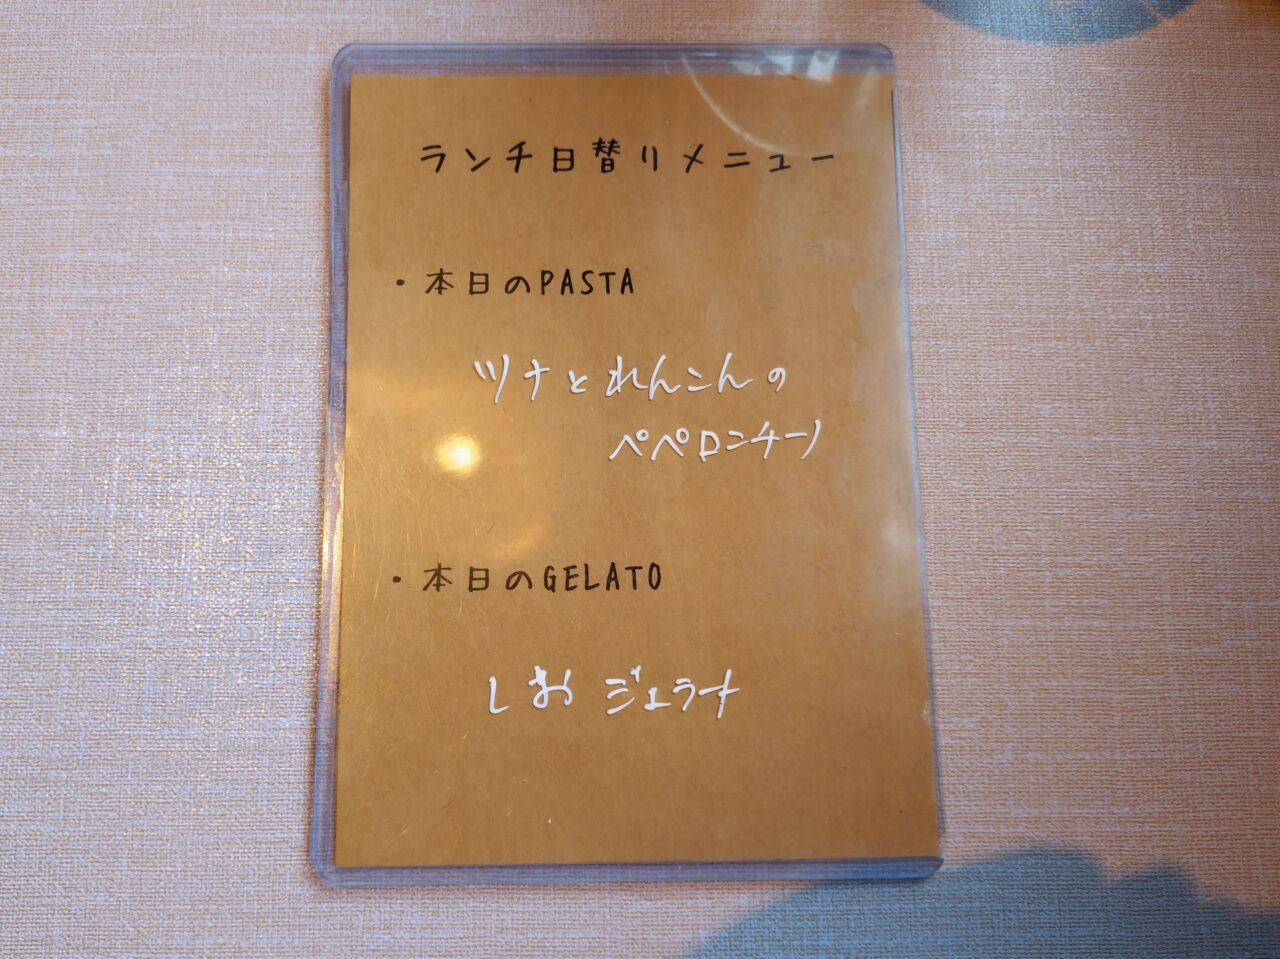 ランチ日替りメニュー
・本日のPASTA
ツナとれんこんの
ペペロンチーノ
・本日のGELATO
しおジェラート